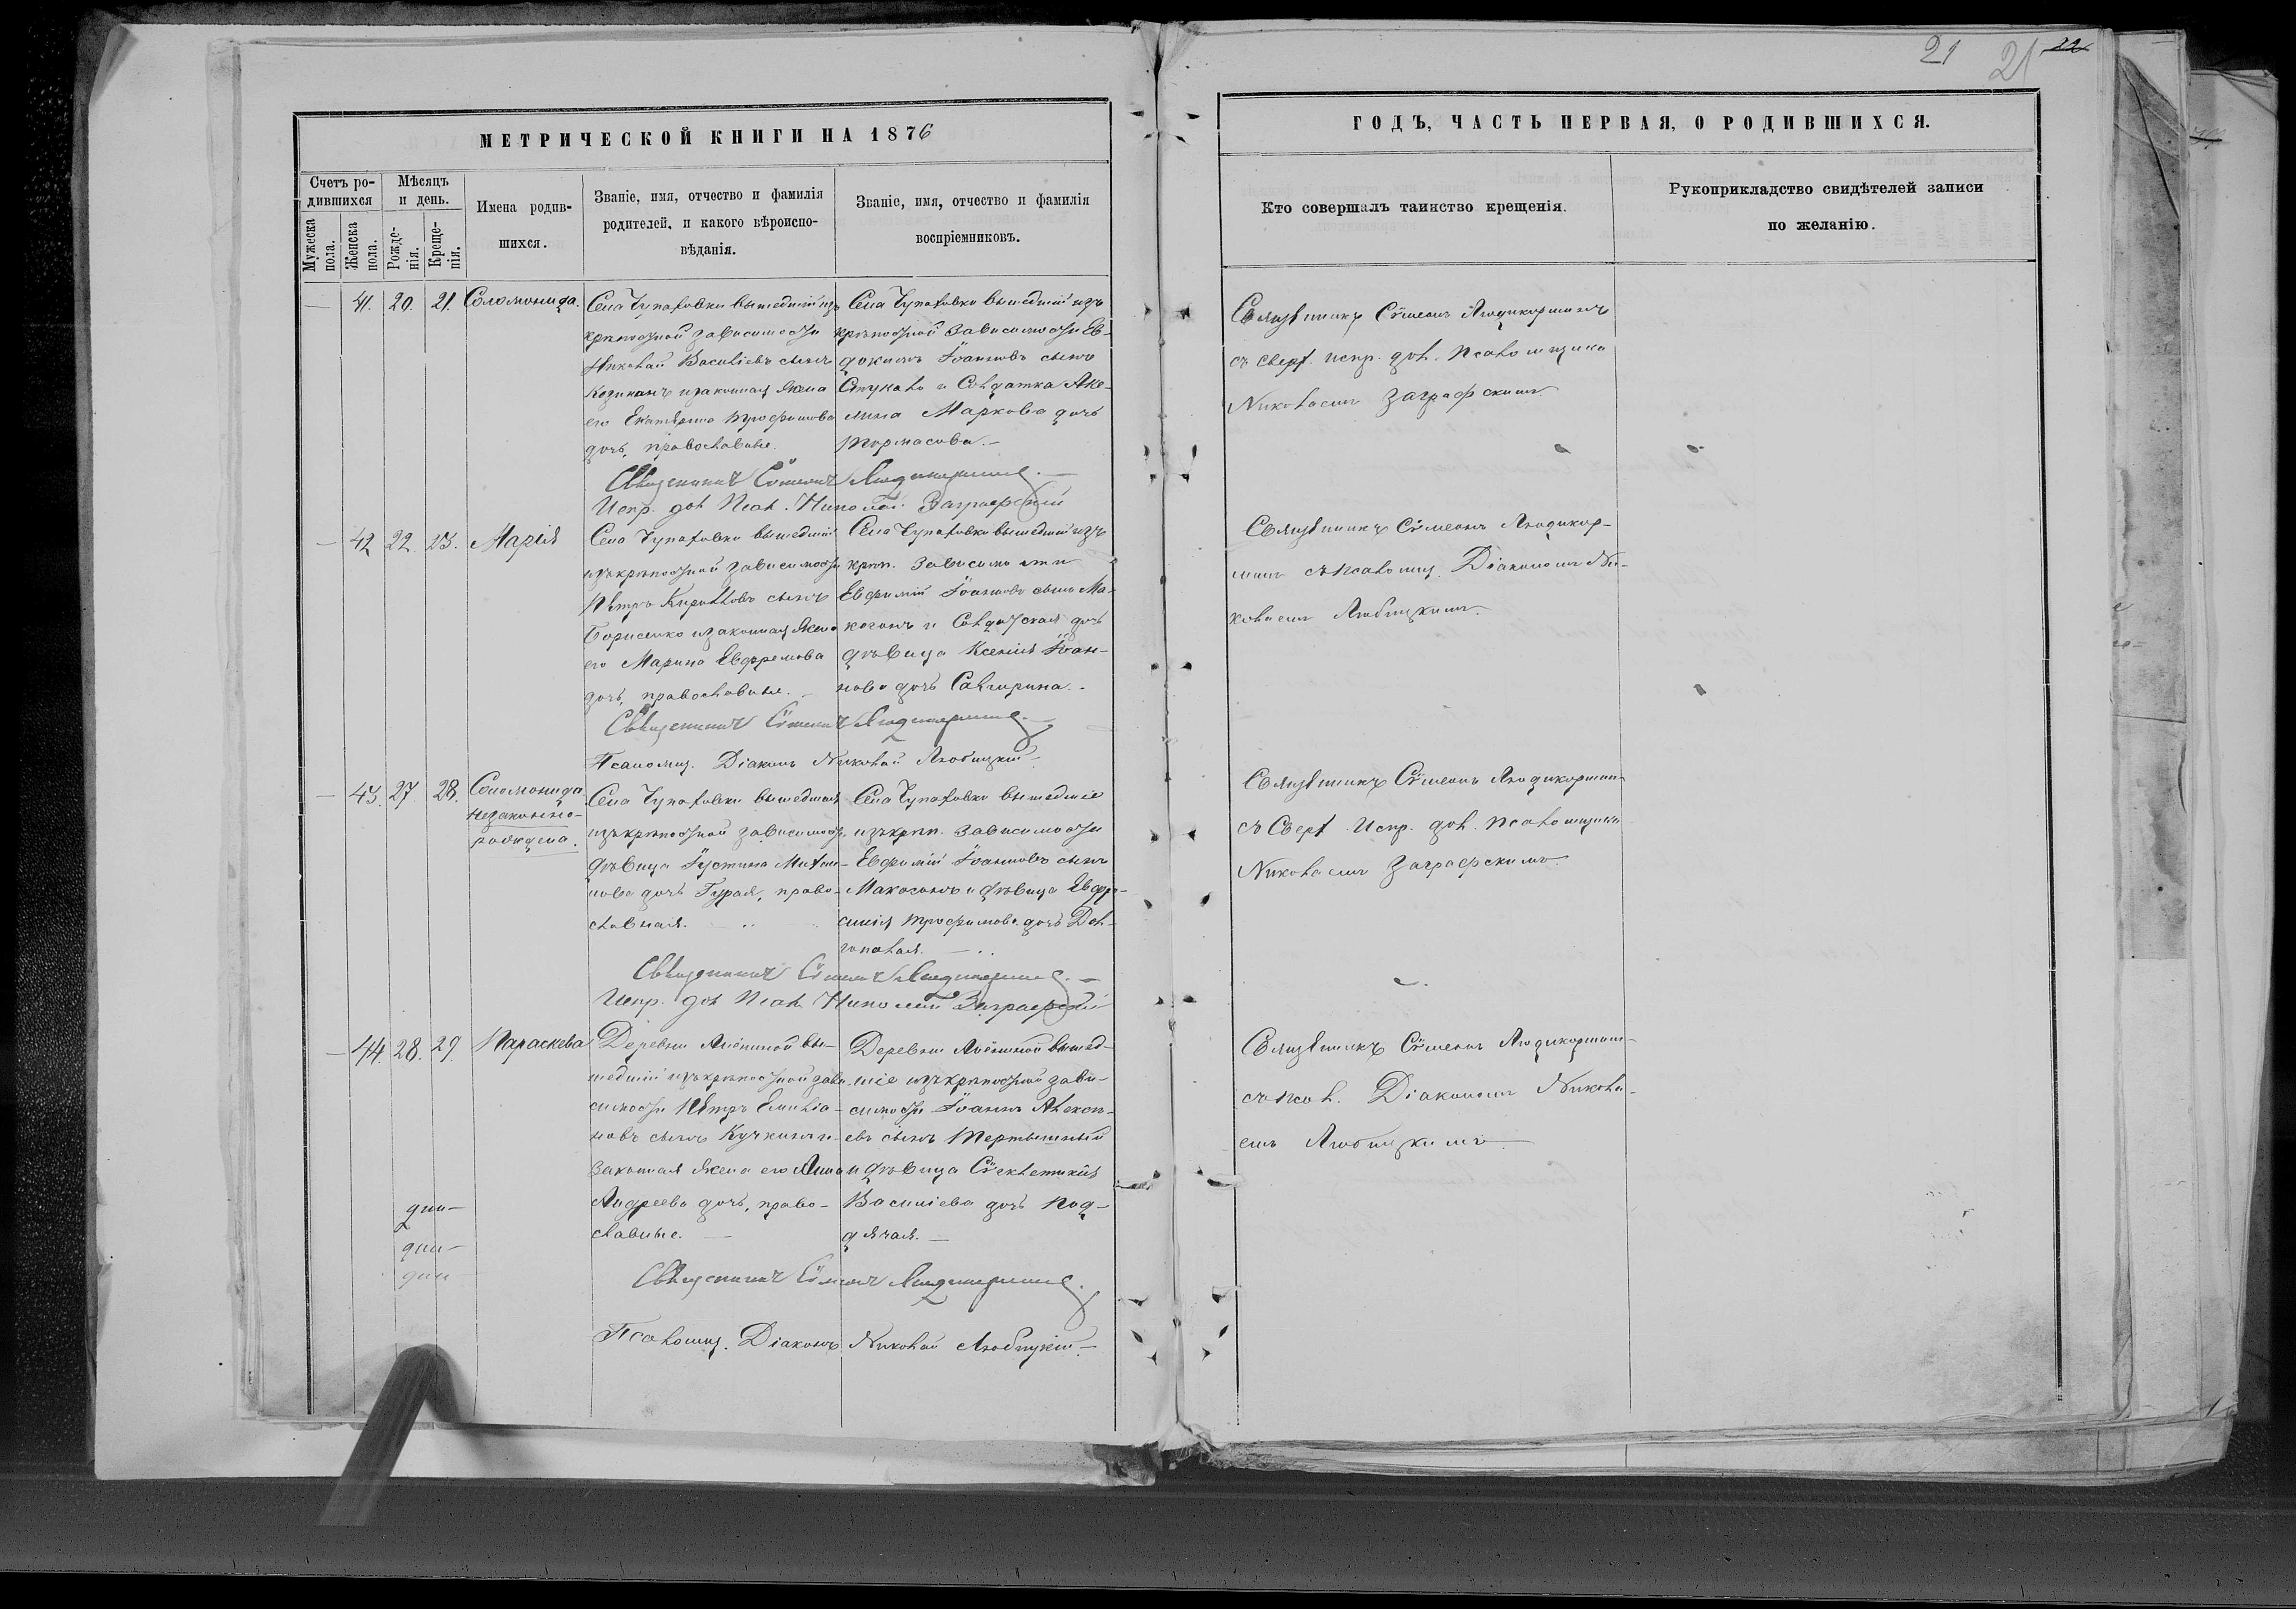 21 21 22
МЕТРИЧЕСКОЙ КНИГИ НА 1876
ГОДЪ, ЧАСТЬ ПЕРВАЯ, О РОДИВШИХСЯ.
Счетъ ро-
дившихся
Мужеска
пола.
Женска
пола.
Мѣсяцъ
и день.
Рожде-
нія.
Креще-
нія.
Имена родив-
шихся.
Званіе, имя, отчество и фамилія
родителей, и какого вѣроиспо-
вѣданія.
Званіе, имя, отчество и фамилія
воспріемниковъ.
Кто совершалъ таинство крещенія.
Рукоприкладство свидѣтелей записи
по желанію.
— 41. 20. 21. Соломонида.
Села Чупаховки вышедшій изъ
крѣпостной зависимости
Николай Василіевъ сынъ
и законная жена
его Екатерина Трофимова
дочь, православные.
Села Чупаховки вышедшій изъ
крѣпостной зависимости Ев-
докимъ Іоанновъ сынъ
и Солдатка Аке-
лина Маркова дочь
Тормасова.—
Священникъ Сѵмеонъ
съ сверх. испр. дол. псаломщика
Николаемъ Заграфскимъ.
Священникъ Сѵмеонъ
Испр. дол. Псал. Николай Заграфскій
— 42 22. 23. Марія
Села Чупаховки вышедшій
изъ крѣпостной зависимости
Пётръ Кирилловъ сынъ
Борисенко и законная жена
его Марина Евфремова
дочь, православные.—
Села Чупаховки вышедшій изъ
крѣп. зависимости
Евфимій Іоанновъ сынъ Ма-
когонъ и Солдатская дочь
дѣвица Ксенія Іоан-
нова дочь
Священникъ Сѵмеонъ
съ псаломщ. Діакономъ Ни-
колаемъ Любицкимъ.
Священникъ Сѵмеонъ
Псаломщ. Діаконъ Николай Любицкій
— 43. 27. 28. Соломонида
незаконно-
рождена.
Села Чупаховки вышедшая
изъ крѣпостной зависимости
дѣвица Іустина Михаи-
лова дочь Гурая, право-
славная.
Села Чупаховки вышедшіе
изъ крѣп. зависимости
Евфимій Іоанновъ сынъ
Макогонъ и дѣвица Евфро-
синія Трофимова дочь Дол-
гополая.—
Священникъ Сѵмеонъ
съ сверх. Испр. дол. псаломщика
Николаемъ Заграфскимъ.
Священникъ Сѵмеонъ
Испр. дол. Псал. Николай Заграфскій
— 44. 28. 29. Параскева
Деревни вы-
шедшій изъ крѣпостной зави-
симости Пётръ Емилiа-
новъ сынъ и
законная жена его Анна
Андреева дочь, право-
славные.—
Деревни вышед-
шіе изъ крѣпостной зави-
симости Іоаннъ Алексѣ-
евъ сынъ Тертышный
и дѣвица Сѵнклетикія
Василіева дочь Под-
дячая.—
Священникъ Сѵмеонъ
съ псал. Діакономъ Никола-
емъ Любицкимъ
Священникъ Сѵмеонъ
Псаломщ. Діаконъ Николай Любицкій.—